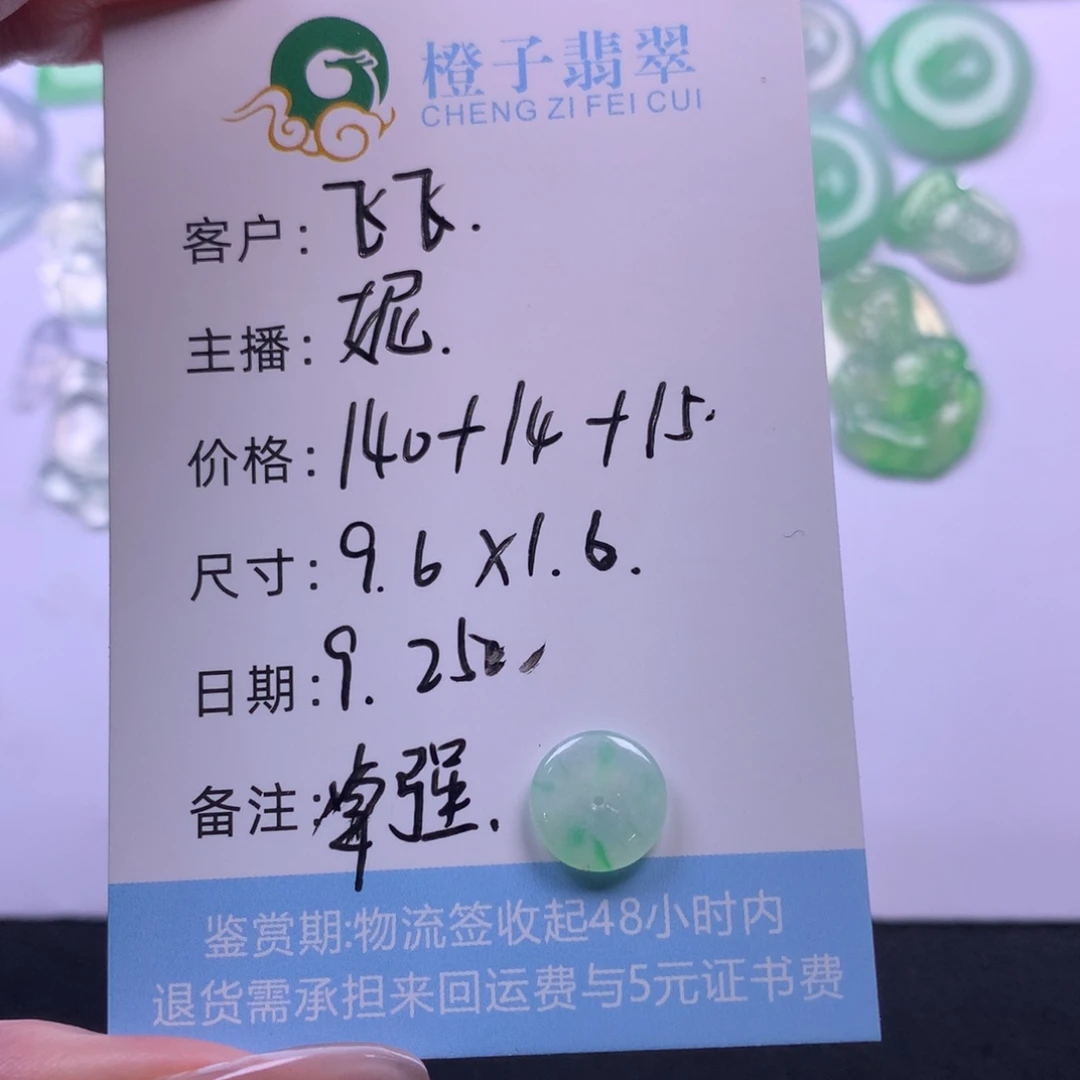 橙子翡翠
CHENG ZI FEI CUI
客户：飞飞.
主播：妮.
价格：140+14+15.
尺寸：9.6×1.6.
日期：9.25
备注：强.
鉴赏期:物流签收起48小时内
退货需承担来回运费与5元证书费